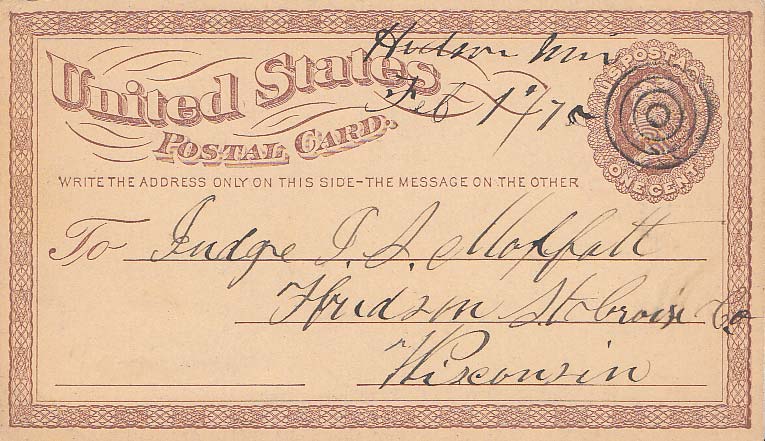 Hudson Wis
Feb 1st/75
United States
POSTAL CARD.
U.S. POSTAGE
ONE CENT
WRITE THE ADDRESS ONLY ON THIS SIDE–THE MESSAGE ON THE OTHER
To Judge J. S. Moffatt
Hudson St Croix Co
Wisconsin